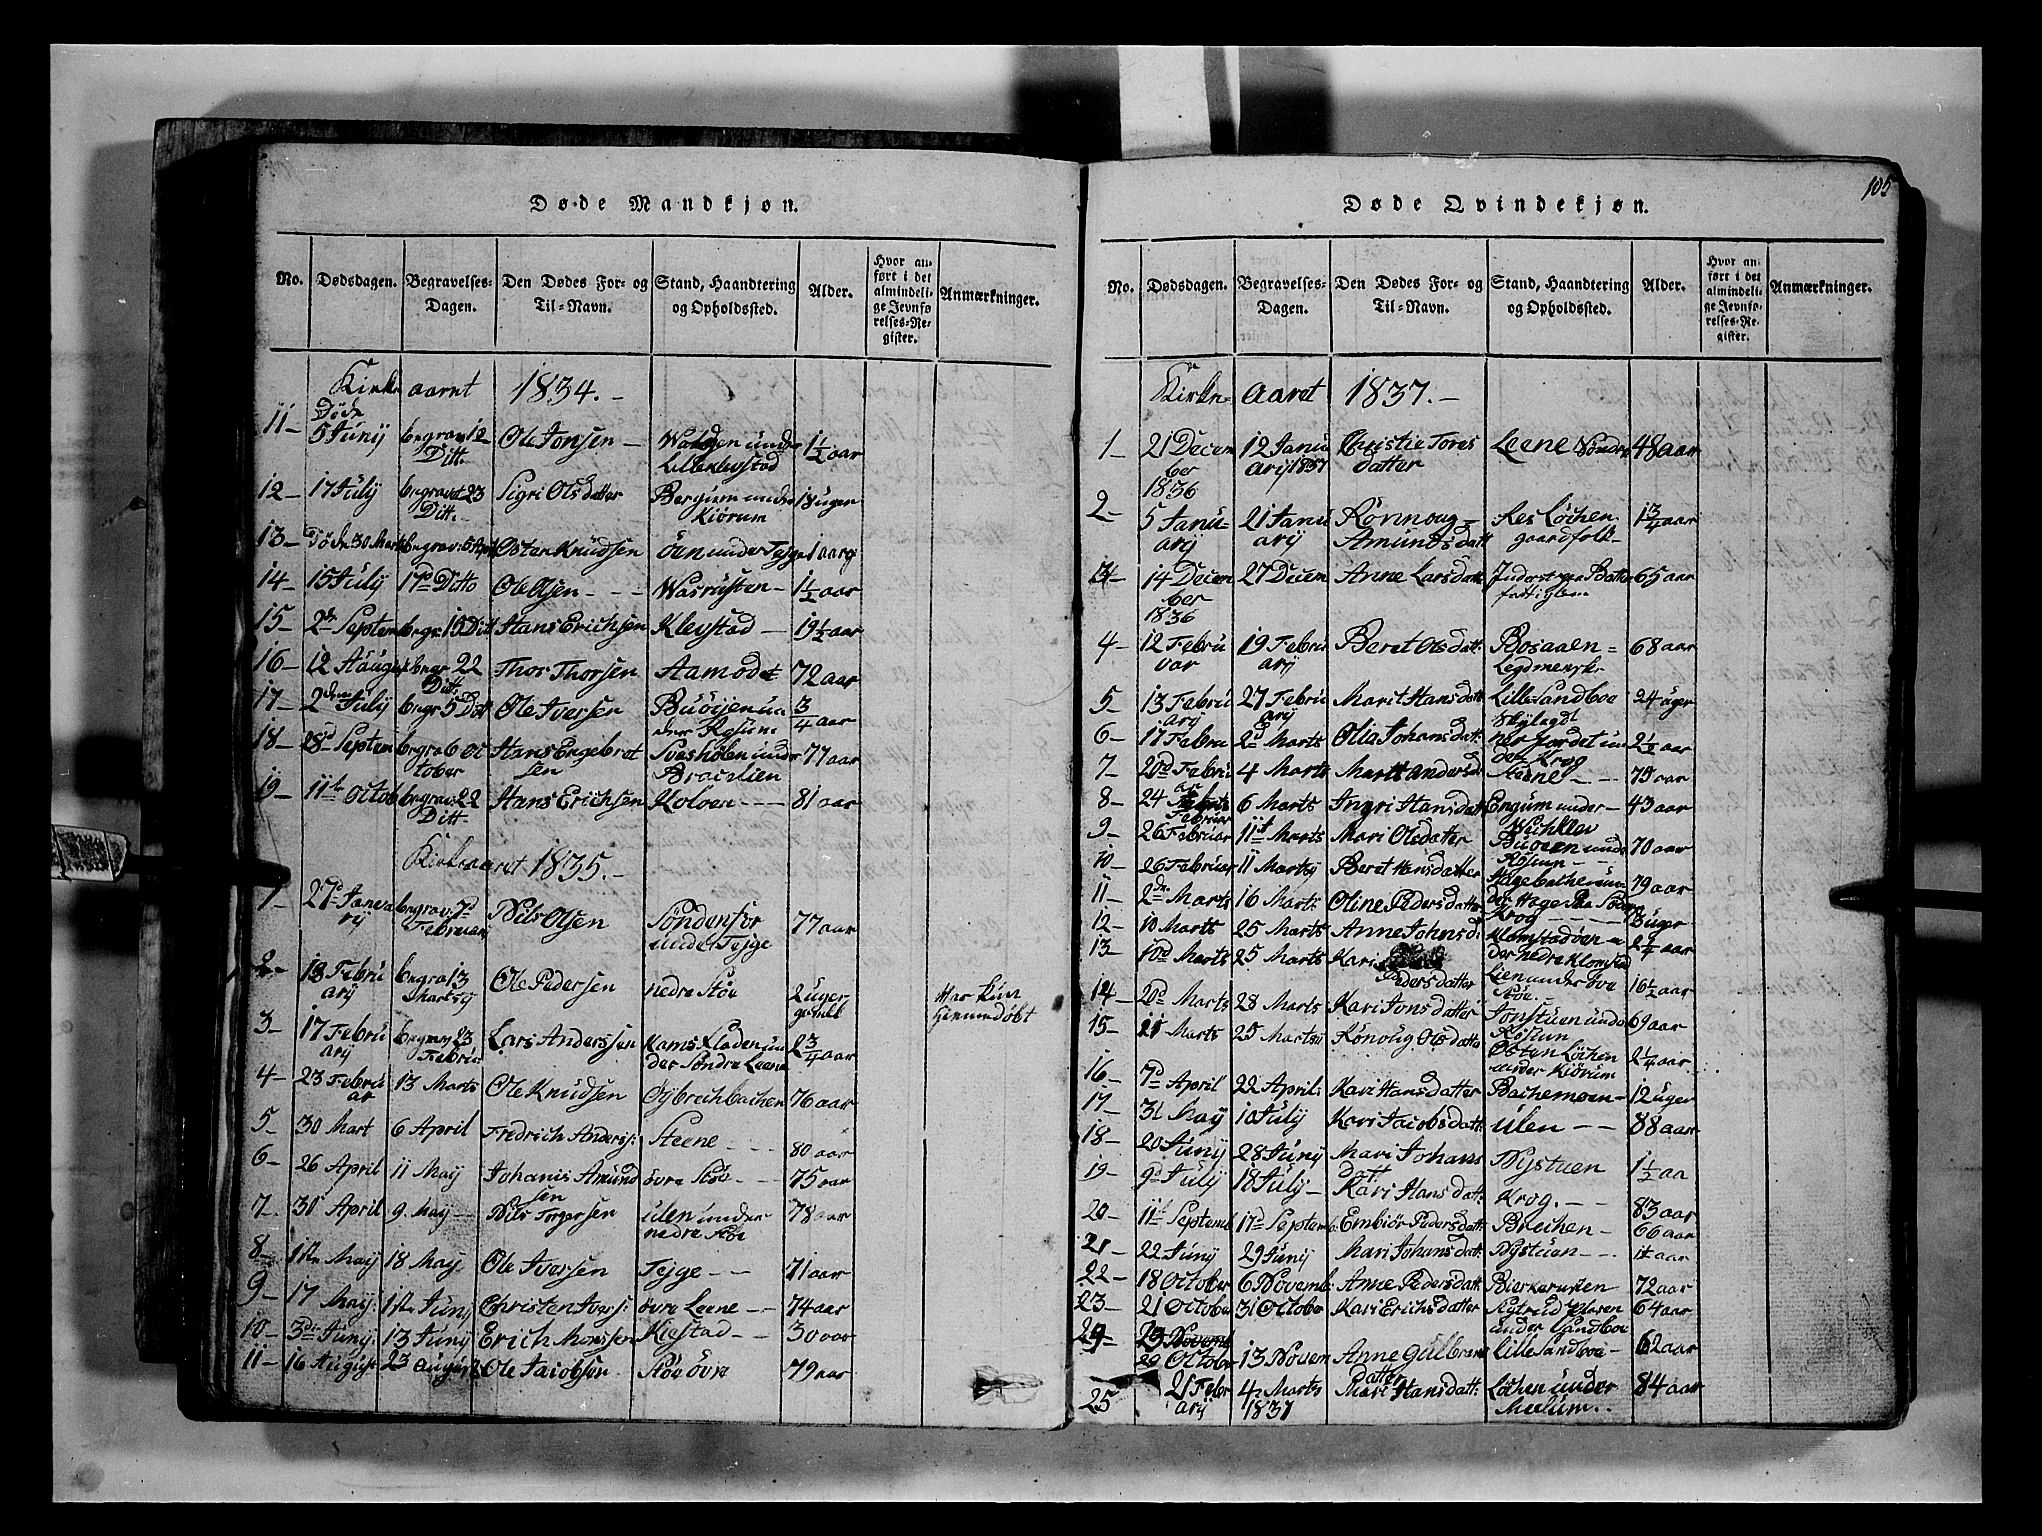 105
Døde Mandkjøn.
No. Dødsdagen. Begravelses-Dagen. Den Dødes For- og Til-Navn. Stand, Haandtering og Opholdssted. Alder. Hvor anført i det almindelige Jevnførelses-Register. Anmærkninger.
Kirke aaret 1834.-
11- Døde 5 Junij begrav 12 Ditt. Ole Jonsen - under 1½ aar
12- 17 Julij begravet 23 Ditt. Sigri Olsdatter Bergium under Kiörum 18 uger
13- Døde 30 Marts begrav: 5 Apr Osten Knudsen öen under Tejge 1 aar
14- 15 Julij 17de Ditto Ole Olsen - - - Wasrusten - 1½ aar
15- 2de Septem begr. 15 Ditt Hans Erichsen Klevstad - 19½ aar
16- 12 begr 22 Ditt. Thor Thorsen Aamodt 72 aar
17- 2den Julij begr 5 Ditt Ole Iversen under ¾ aar
18- 28d Septem begra 6 October Hans Engebretsen under 77 aar
19- 11te Octob begrav: 22 Ditt. Hans Erichsen Koloen - - - 81 aar
Kirkeaaret 1835.-
1- 27de Januarij begrav: 7d Februarij Nils Olsen Söndenfor under Tejge 77 aar
2- 18 Februarij begra 13 Martsij Ole Pedersen nedre Stöe 2 uger gamel Har kun hiemedöbt
3- 17 Februarij begrav 23 Februar Lars Anderssen under Söndre Leene 2¾ aar
4- 23 Februar 13 Marts Ole Knudsen Öybrechbachen 76 aar
5- 30 Mart 6 April Fredrich Anderss: Steene - - - 80 aar
6- 26 April 11 Maij Johanis Amundsen övre Stöe - 75 aar
7- 30 April 9 Maij - Nils Torgersen ulen under nedre Stöe 78 aar
8- 1ste Maij 18 Maij Ole Iversen Tejge - - 71 aar
9- 17 Maij: 1ste Junij Christen Ivers: övre Leene - - 74 aar
10- 3die Junij 13 Junij Erich Monssen Kiestad - - 30 aar
11- 16 August 23 August Ole Jacobsen Stöe övre 79 aar
Døde Qvindekjøn.
No. Dødsdagen. Begravelses-Dagen. Den Dødes For- og Til-Navn. Stand, Haandtering og Opholdssted. Alder. Hvor anført i det almindelige Jevnførelses-Register. Anmærkninger.
Kirke- aaret 1837.-
1- 21 December 1836 12 Januarij 1837 Christie Tores datter Leene Söndre 48 aar
2- 5 Januarij 21 Januarij Rönnoug Amundsdatt Löchen gaardfolk- 1¾ aar
3- 14 December 1836 27 Decem Anne Larsdatt 65 aar
4- 12 Februar 19 Februarij Beret Olsdatt: Bosaaen = Legdmensk- 68 aar
5- 13 Februarij 27 Februarij Marit Hansdatt Lille Sandboe 24 uger
6- 17 Febru 2d Marts Olia Johansdatt under Krog 2½ aar
7- 20d Februar 4 Marts Marit Andersd Steene - - - 75 aar
8- 24 Februar 6 Marts Ingri Hansdatt Engum under - 43 aar
9- 26 Februar 11te Marts Mari Olsdatter under 70 aar
10- 26 Februar 11 Martsij Beret Hansdatter under Hage 79 aar
11- 2de Marts 16 Marts Oline Pedersdatter Krog 18 uger
12- 10 Marts 25 Marts Anne Johnsd: Klomstadöen under nedre Klomstad 2¼ aar
13- 10d Marts 25 Marts Kari Pedersdatter Lien under Stöe 16½ aar
14- 20d Marts 28 Marts Kari Jonsdatter Jonstuen under 69 aar
15- 21 Marts 25 Martsij Rönoug Olsdatter Osten Löchen under Kiörum 2¼ aar
16- 7d April 22 April: Kari Hansdatter Bachemoen- 12 uger
17- 31 Maij 10 Julij Kari Jacobsdatt: ulen - - 88 aar
18- 20 Junij 28 Junij Mari Johans datt Nystuen 1½ aa
19- 9d Julij 18 Julij - Kari Hansdatt: Krog. - - 83 aar
20- 11te Septemb 17d Septemb: Embiör Pedersdatt: Brechen - 66 aar
21- 22 Junij 29 Junij Mari Johansdatt: Nystuen - - - aar
22- 18 October 6 Novemb Anne Pedersdatt: 72 aar
23- 21 October 31 October Kari Erichsdatter under Sandboe 64 aar
24- 29 October 13 Novem Anne Gulbrans Datter Lille Sandboe - 62 aar
25 21 Februarij 4 Marts 1837 Mari Hansdatt: Löchen under Meelum.. 84 aar